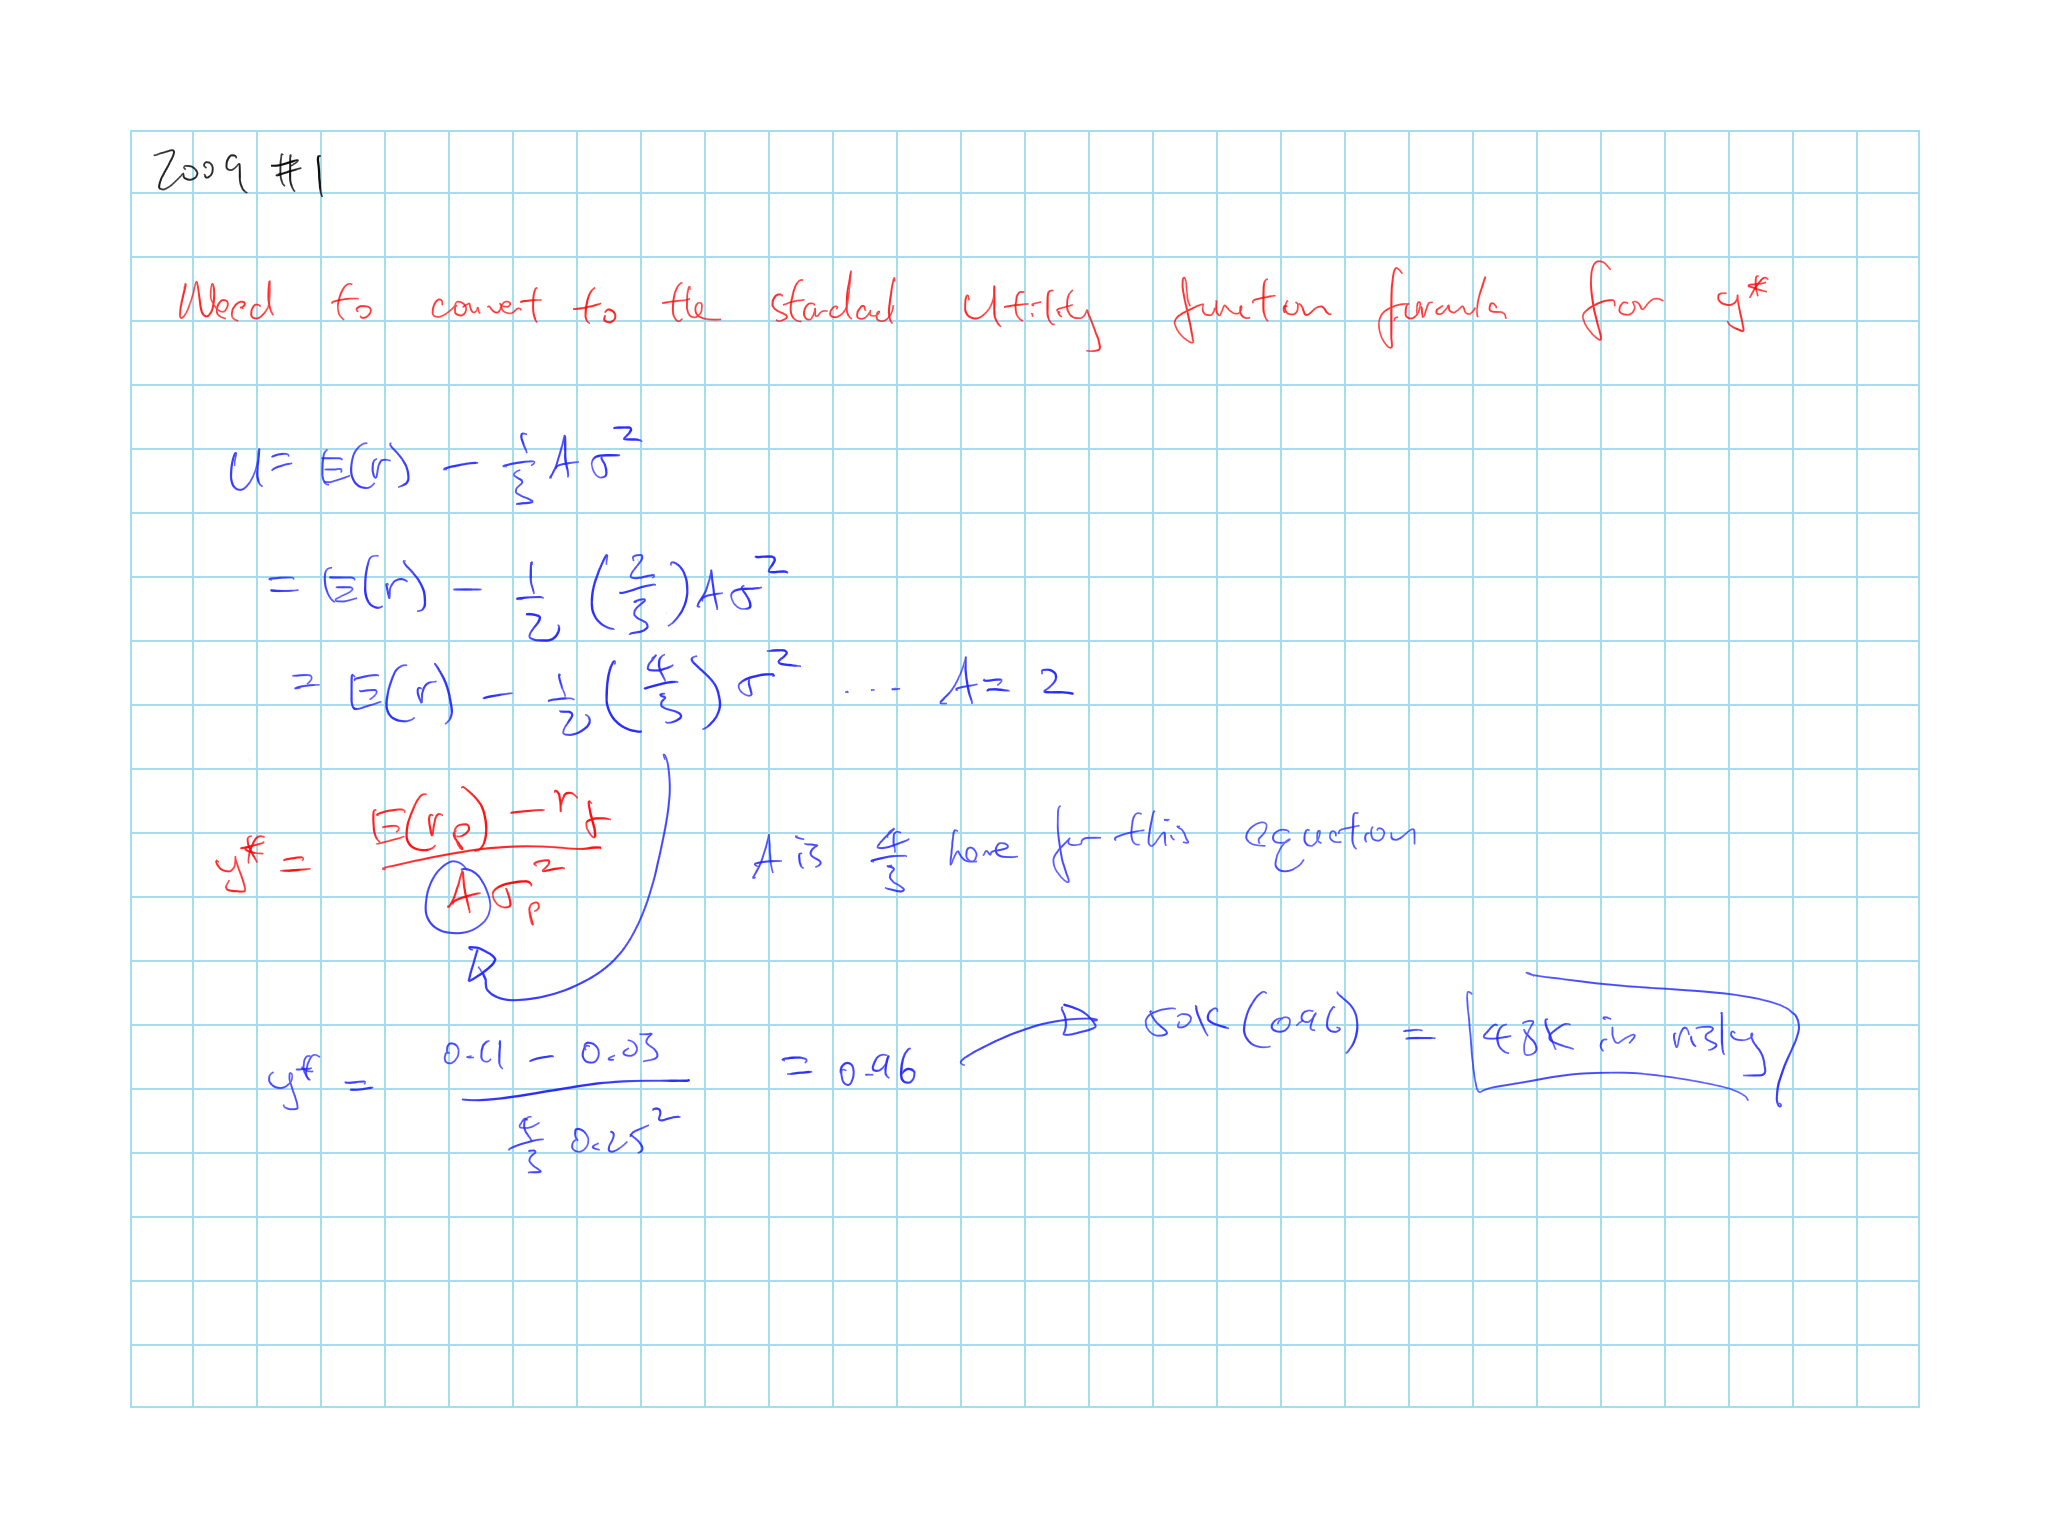 2009 #1
Need to convert to the standard utility function formula for y*
U = E(r) - 1/3 A σ²
= E(r) - 1/2 (2/3) A σ²
= E(r) - 1/2 (4/3) σ² ... A = 2
y* = (E(rp) - rf) / (A σp²) A is 4/3 here for this equation
y* = (0.11 - 0.03) / (4/3 0.25²) = 0.96 → 50K (0.96) = 48K in risky